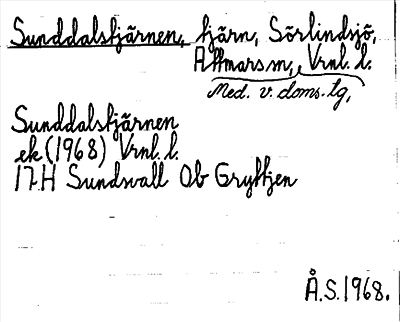 Sunddalstjärnen, tjärn, Sörlindsjö,
Attmars sn, Vrnl. l.
Med. v. doms. lg,
Sunddalstjärnen
ek (1968) Vrnl. l.
17H Sundsvall Ob Gryttjen
Å.S. 1968.